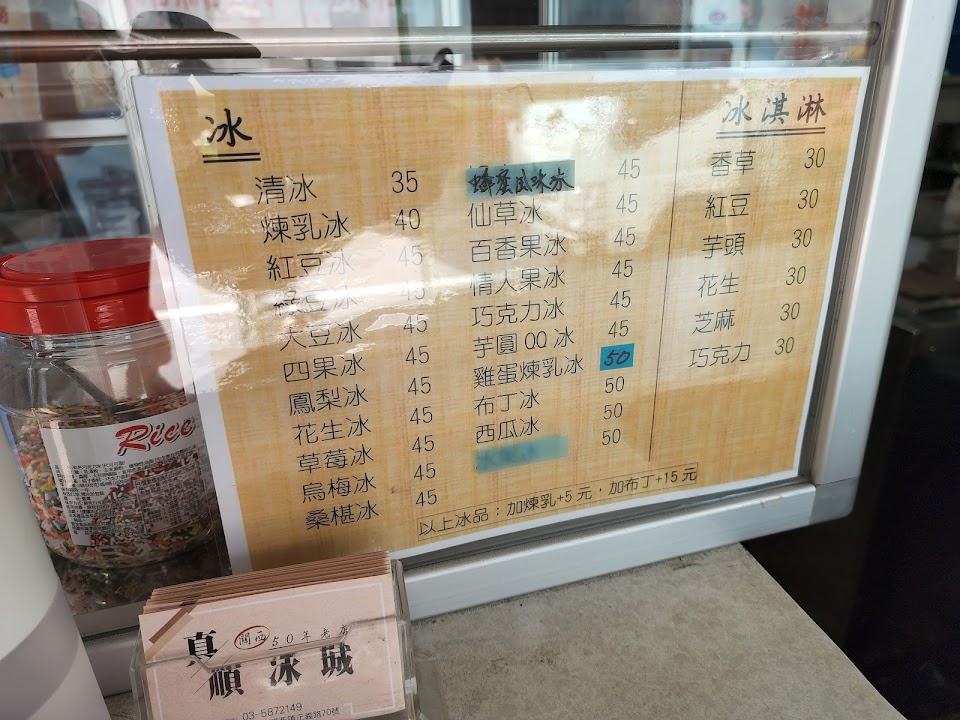 冰
清冰 35
煉乳冰 40
紅豆冰 45
綠豆冰 45
大豆冰 45
四果冰 45
鳳梨冰 45
花生冰 45
草莓冰 45
烏梅冰 45
桑椹冰 45
蜂蜜瓜味冰 45
仙草冰 45
百香果冰 45
情人果冰 45
巧克力冰 45
芋圓OO冰 45
雞蛋煉乳冰 50
布丁冰 50
西瓜冰 50
50
以上冰品：加煉乳+5元，加布丁+15元
冰淇淋
香草 30
紅豆 30
芋頭 30
花生 30
芝麻 30
巧克力 30
Rice
關西 50年老店
真順冰城
03-5872149
西鎮正義路70號